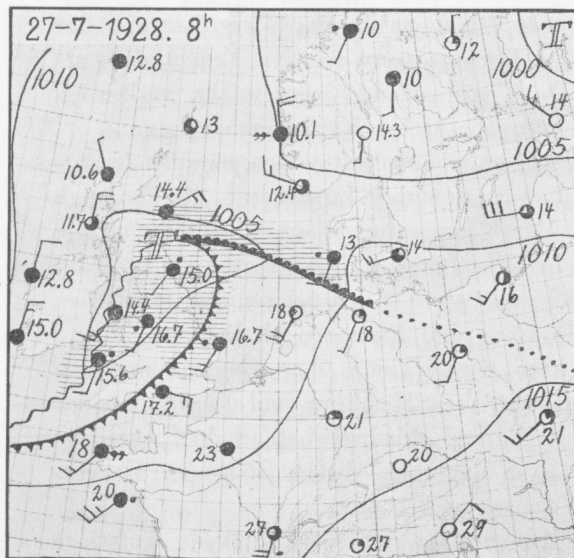 27-7-1928. 8h
10
12
T
1010
12.8
10
1000
14
13
10.1
14.3
1005
10.6
12.4
14.4
11.7
1005
14
T
13
14
1010
12.8
15.0
16
14.4
18
15.0
16.7
18
16.7
20
15.6
17.2
1015
21
21
18
23
20
20
27
27
29